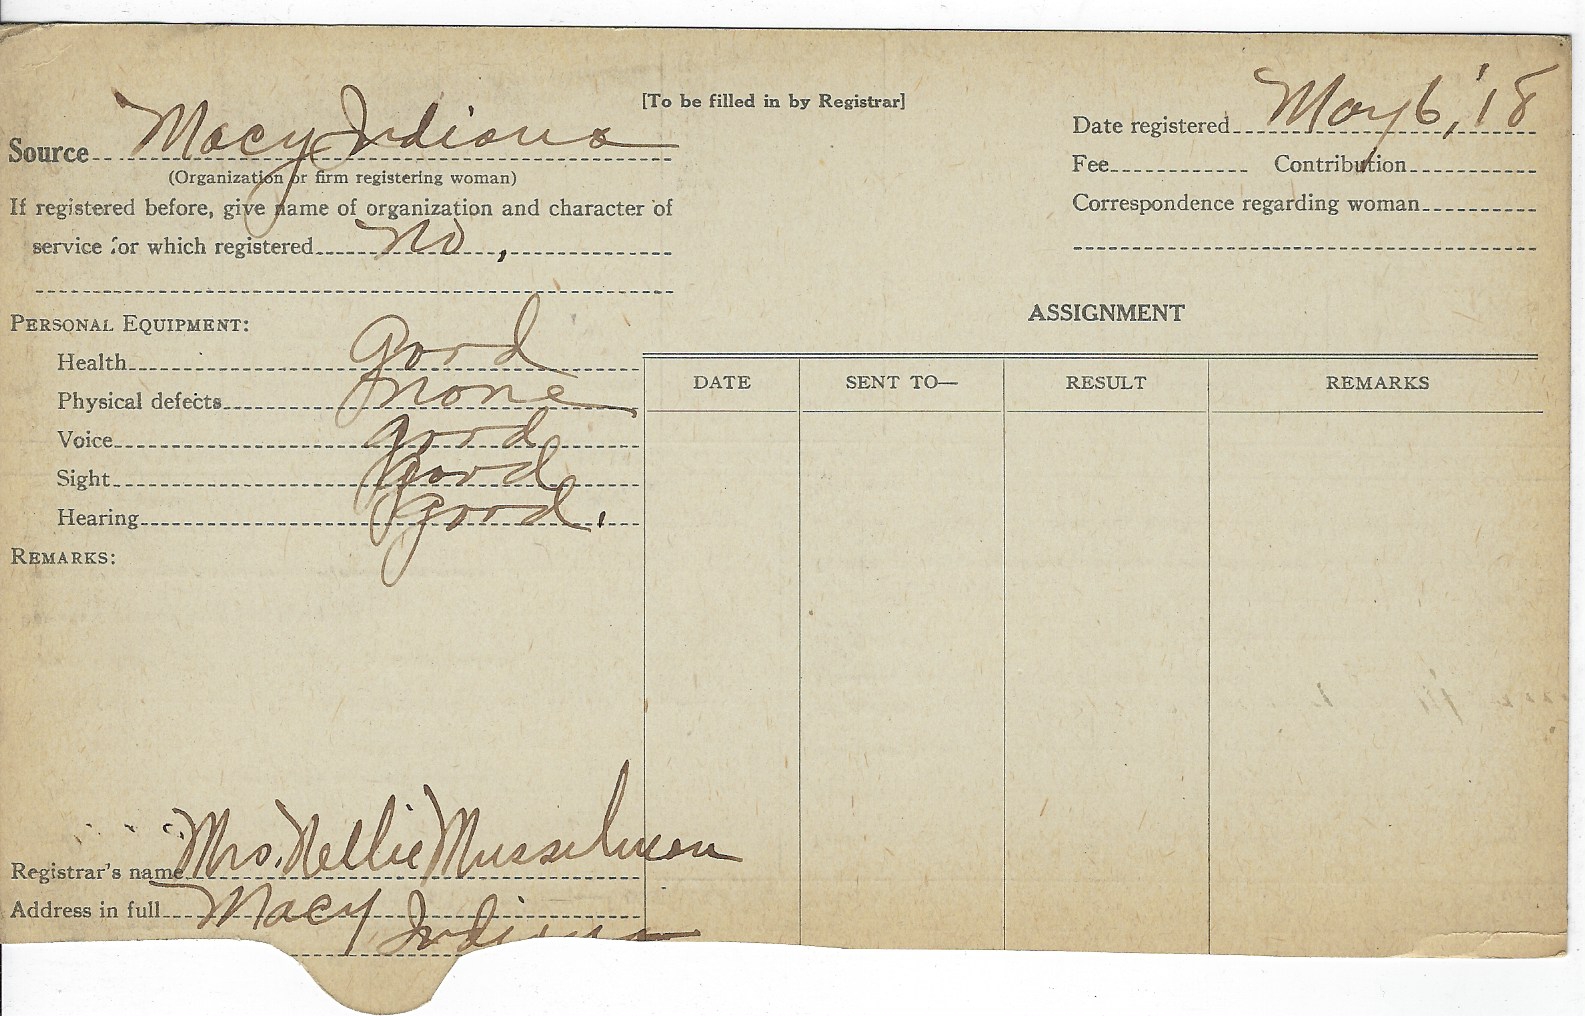 [To be filled in by Registrar]
Source Macy Indiana
(Organization or firm registering woman)
If registered before, give name of organization and character of
service for which registered No,
Date registered May 6, '18
Fee Contribution
Correspondence regarding woman
PERSONAL EQUIPMENT:
Health good
Physical defects none
Voice good
Sight good
Hearing good.
REMARKS:
ASSIGNMENT
DATE SENT TO— RESULT REMARKS
Registrar's name Mrs. Nellie Musselman
Address in full Macy
Indiana